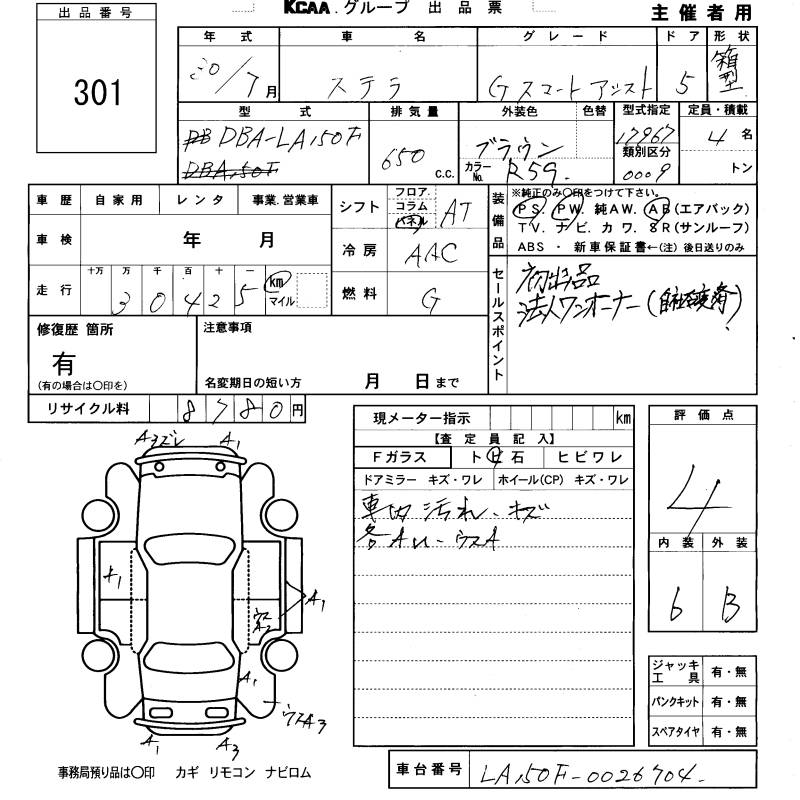 出品番号
301
KCAA.グループ 出品票
主催者用
年式 車名 グレード ドア 形状
30/7月 ステラ Gスマートアシスト 5 箱型
型式 排気量 外装色 色替 型式指定 定員・積載
DBA-LA150F 650 c.c. ブラウン 17967 4名
DBA150F カラーNo. R59. 類別区分 0009 トン
車歴 自家用 レンタ 事業.営業車
車検 年 月
走行 十万 万 千 百 十 一
30425 km マイル
シフト フロア コラム パネル AT
冷房 AAC
燃料 G
装備品 ※純正のみ〇印をつけて下さい。
PS. PW. 純AW. AB(エアバック)
TV. ナビ. カワ. SR(サンルーフ)
ABS ・ 新車保証書←(注) 後日送りのみ
セールスポイント
初出品
法人ワンオーナー
修復歴 箇所
有
(有の場合は〇印を)
注意事項
名変期日の短い方 月 日まで
リサイクル料 8780円
現メーター指示 km
【査定員記入】
Fガラス ト ヒ 石 ヒビワレ
ドアミラー キズ・ワレ ホイール(CP) キズ・ワレ
車内汚れ.キズ
各AU-ウスA
評価点
4
内装 外装
6 B
ジャッキ工具 有・無
パンクキット 有・無
スペアタイヤ 有・無
A3ズレ A1
A1
A1
A1
ウスA3
A1 A3
事務局預り品は〇印 カギ リモコン ナビロム
車台番号 LA150F-0026704-